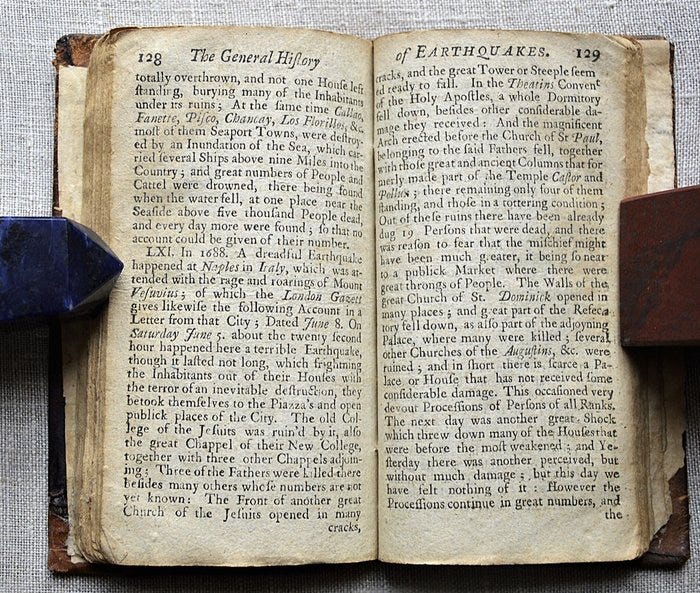 128 The General Hiſtory
totally overthrown, and not one Houſe left
ſtanding, burying many of the Inhabitants
under its ruins; At the ſame time Callao,
Fanette, Piſco, Chancay, Los Florillos, &c.
moſt of them Seaport Towns, were deſtroy-
ed by an Inundation of the Sea, which car-
ried ſeveral Ships above nine Miles into the
Country; and great numbers of People and
Cattel were drowned, there being found
when the water fell, at one place near the
Seaſide above five thouſand People dead,
and every day more were found; ſo that no
account could be given of their number.
LXI. In 1688. A dreadful Earthquake
happened at Naples in Italy, which was at-
tended with the rage and roarings of Mount
Veſuvius; of which the London Gazett
gives likewiſe the following Account in a
Letter from that City; Dated June 8. On
Saturday June 5. about the twenty ſecond
hour happened here a terrible Earthquake,
though it laſted not long, which frighting
the Inhabitants out of their Houſes with
the terror of an inevitable deſtruction, they
betook themſelves to the Piazza's and open
publick places of the City. The old Col-
lege of the Jeſuits was ruin'd by it, alſo
the great Chappel of their New College,
together with three other Chappels adjoin-
ing; Three of the Fathers were killed there
beſides many others whoſe numbers are not
yet known: The Front of another great
Church of the Jeſuits opened in many
cracks,
of EARTHQUAKES. 129
cracks, and the great Tower or Steeple ſeem
ed ready to fall. In the Theatins Convent
of the Holy Apoſtles, a whole Dormitory
fell down, beſides other conſiderable da-
mage they received: And the magnificent
Arch erected before the Church of St Paul,
belonging to the ſaid Fathers fell, together
with thoſe great and ancient Columns that for
merly made part of the Temple Caſtor and
Pollux; there remaining only four of them
ſtanding, and thoſe in a tottering condition;
Out of theſe ruins there have been already
dug 19 Perſons that were dead, and there
was reaſon to fear that the miſchief might
have been much greater, it being ſo near
to a publick Market where there were
great throngs of People. The Walls of the
great Church of St. Dominick opened in
many places; and great part of the Refecta
tory fell down, as alſo part of the adjoyning
Palace, where many were killed; ſeveral
other Churches of the Auguſtins, &c. were
ruined; and in ſhort there is ſcarce a Pa-
lace or Houſe that has not received ſome
conſiderable damage. This occaſioned very
devout Proceſſions of Perſons of all Ranks.
The next day was another great Shock
which threw down many of the Houſes that
were before the moſt weakened; and Ye-
ſterday there was another perceived, but
without much damage; but this day we
have felt nothing of it: However the
Proceſſions continue in great numbers, and
the